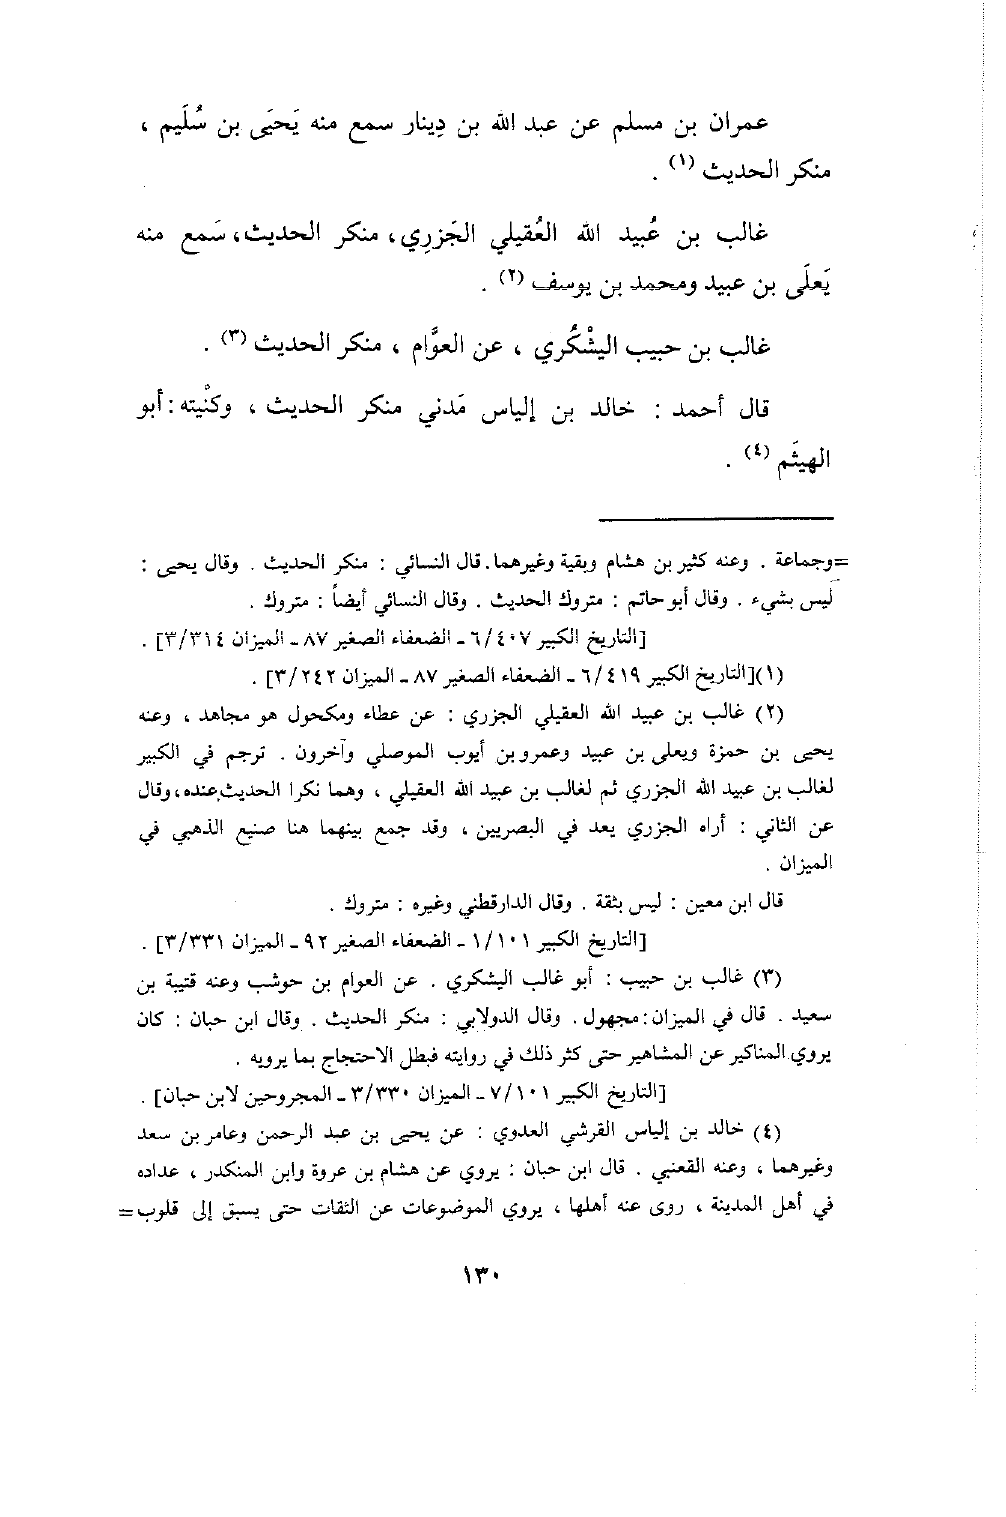 عمران بن مسلم عن عبد الله بن دِينار سمع منه يَحيَى بن سُلَيم ،
منكر الحديث (١) .
غالب بن عُبيد الله العُقيلي الجَزرِي، منكر الحديث، سَمع منه
يَعلَى بن عبيد ومحمد بن يوسف (٢) .
غالب بن حبيب اليشْكُري ، عن العوَّام ، منكر الحديث (٣) .
قال أحمد : خالد بن إلياس مَدني منكر الحديث ، وكنْيته : أبو
الهيثَم (٤) .
=وجماعة . وعنه كثير بن هشام وبقية وغيرهما. قال النسائي : منكر الحديث . وقال يحيى :
ليس بشيء . وقال أبو حاتم : متروك الحديث . وقال النسائي أيضاً : متروك .
[التاريخ الكبير ٦/٤٠٧ ـ الضعفاء الصغير ٨٧ ـ الميزان ٣/٣١٤] .
(١)[التاريخ الكبير ٦/٤١٩ ـ الضعفاء الصغير ٨٧ ـ الميزان ٣/٢٤٢] .
(٢) غالب بن عبيد الله العقيلي الجزري : عن عطاء ومكحول هو مجاهد ، وعنه
يحيى بن حمزة ويعلى بن عبيد وعمرو بن أيوب الموصلي وآخرون . ترجم في الكبير
لغالب بن عبيد الله الجزري ثم لغالب بن عبيد الله العقيلي ، وهما نكرا الحديث عنده، وقال
عن الثاني : أراه الجزري يعد في البصريين ، وقد جمع بينهما هنا صنيع الذهبي في
الميزان .
قال ابن معين : ليس بثقة . وقال الدارقطني وغيره : متروك .
[التاريخ الكبير ١/١٠١ ـ الضعفاء الصغير ٩٢ ـ الميزان ٣/٣٣١] .
(٣) غالب بن حبيب : أبو غالب اليشكري . عن العوام بن حوشب وعنه قتيبة بن
سعيد . قال في الميزان : مجهول . وقال الدولابي : منكر الحديث . وقال ابن حبان : كان
يروي المناكير عن المشاهير حتى كثر ذلك في روايته فبطل الاحتجاج بما يرويه .
[التاريخ الكبير ٧/١٠١ ـ الميزان ٣/٣٣٠ ـ المجروحين لابن حبان] .
(٤) خالد بن إلياس القرشي العدوي : عن يحيى بن عبد الرحمن وعامر بن سعد
وغيرهما ، وعنه القعنبي . قال ابن حبان : يروي عن هشام بن عروة وابن المنكدر ، عداده
في أهل المدينة ، روى عنه أهلها ، يروي الموضوعات عن الثقات حتى يسبق إلى قلوب=
١٣٠